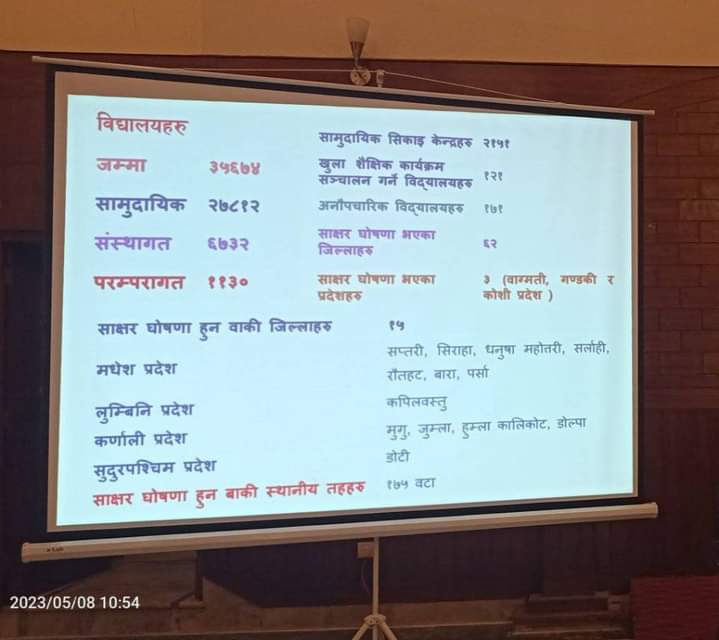 विद्यालयहरु
जम्मा ३५६७४
सामुदायिक २७८१२
संस्थागत ६७३२
परम्परागत ११३०
सामुदायिक सिकाइ केन्द्रहरु २१५१
खुला शैक्षिक कार्यक्रम
सञ्चालन गर्ने विद्यालयहरु १२१
अनौपचारिक विद्यालयहरु १७१
साक्षर घोषणा भएका
जिल्लाहरु ६२
साक्षर घोषणा भएका ३ (वाग्मती, गण्डकी र
प्रदेशहरु कोशी प्रदेश )
साक्षर घोषणा हुन वाकी जिल्लाहरु १५
मधेश प्रदेश सप्तरी, सिराहा, धनुषा महोत्तरी, सर्लाही,
रौतहट, बारा, पर्सा
लुम्बिनि प्रदेश कपिलवस्तु
कर्णाली प्रदेश मुगु, जुम्ला, हुम्ला कालिकोट, डोल्पा
सुदुरपश्चिम प्रदेश डोटी
साक्षर घोषणा हुन बाकी स्थानीय तहहरु १७५ वटा
2023/05/08 10:54